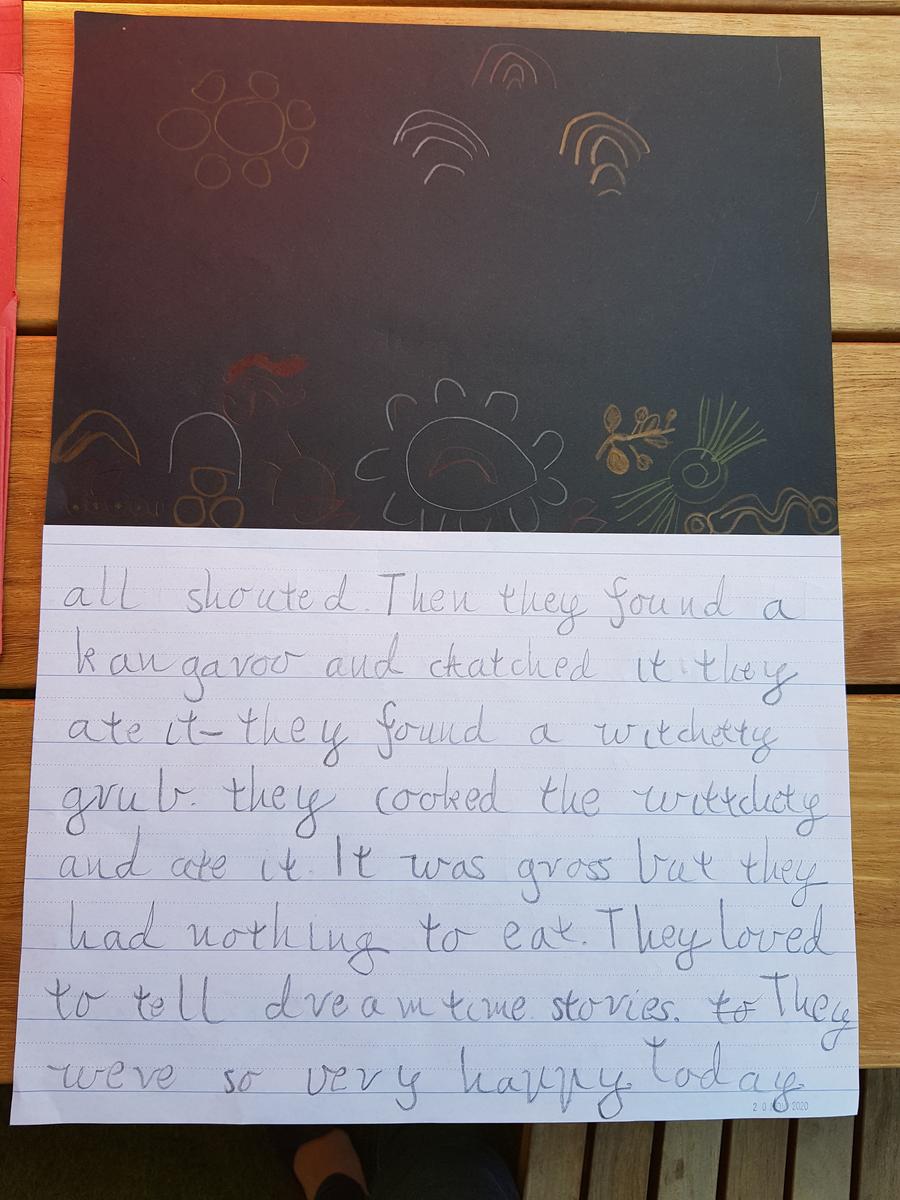 all shouted. Then they found a
kangaroo and chatched it. they
ate it- they found a witchetty
grub. they cooked the wittchety
and ate it. It was gross but they
had nothing to eat. They loved
to tell dreamtime stories. to They
were so very happy today.
2020